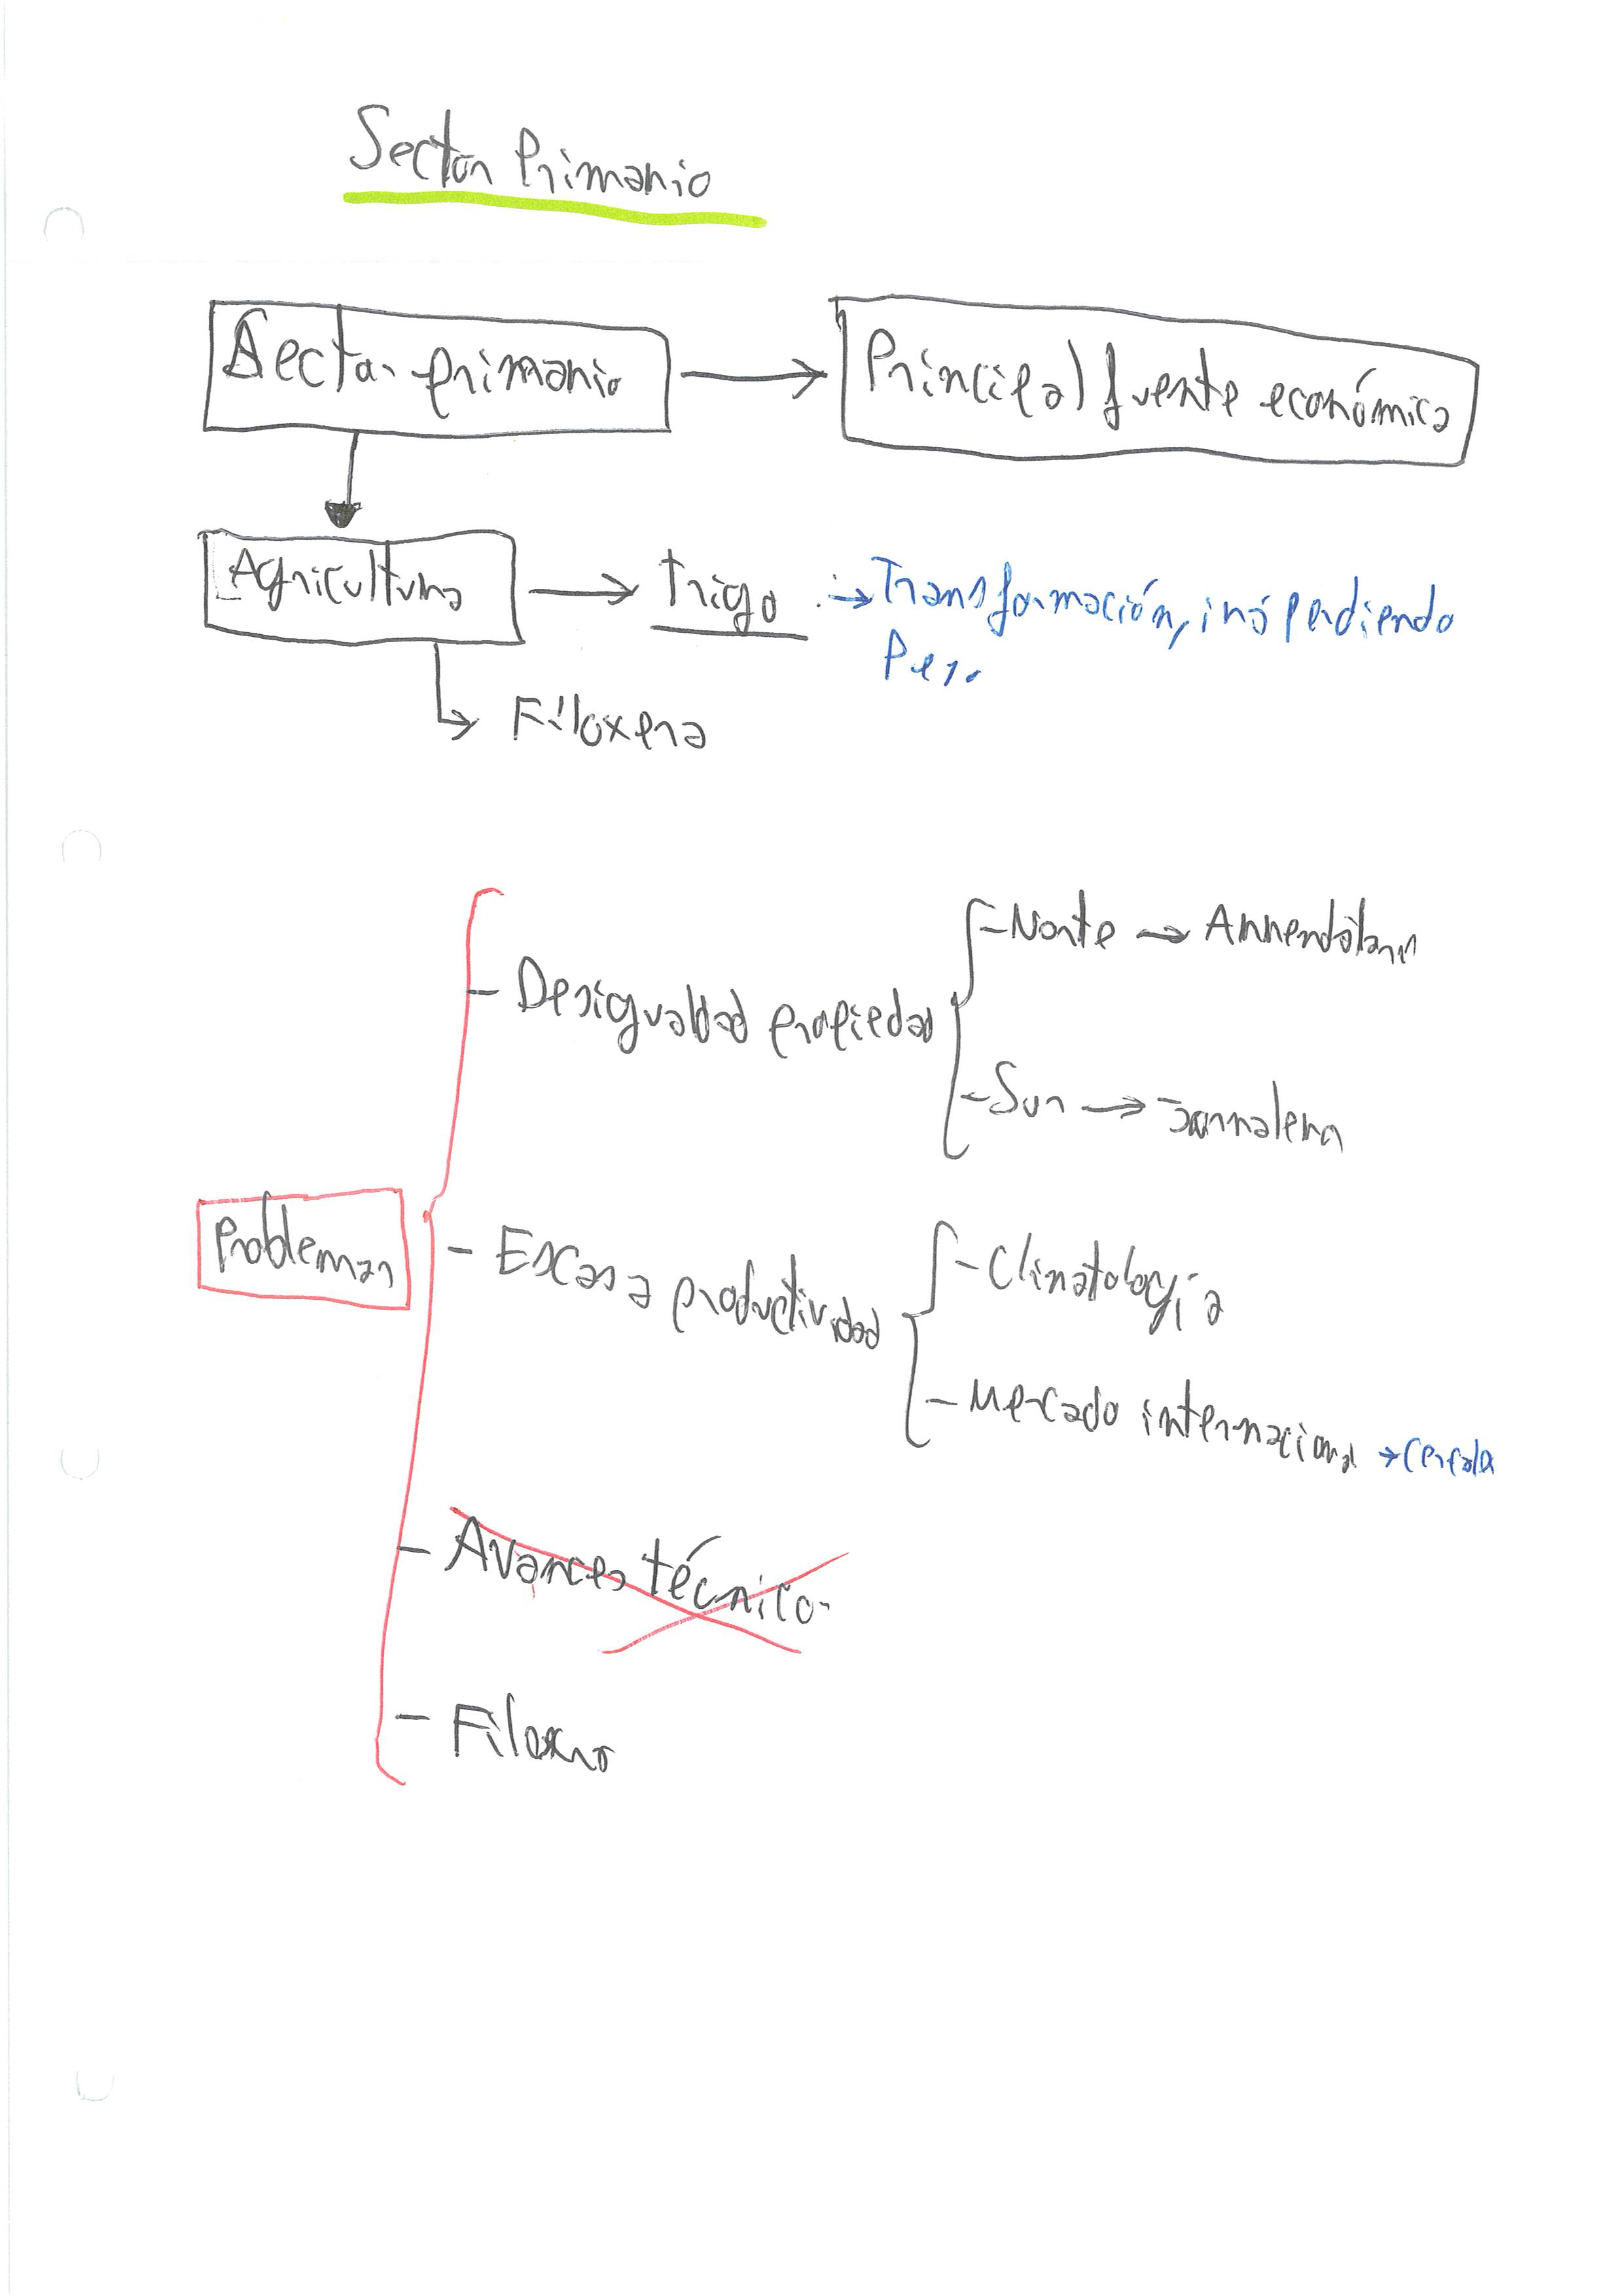 Sector Primario
Sector primario → Principal fuente económica
Agricultura → trigo → Transformación, irás perdiendo
Peso
Filoxera
- Norte → Arrendatarios
- Desigualdad propiedad
- Sur → Jornaleros
Problemas
- Escasa productividad
- Climatología
- Mercado internacional → cereales
- Avances técnicos
- Filoxera